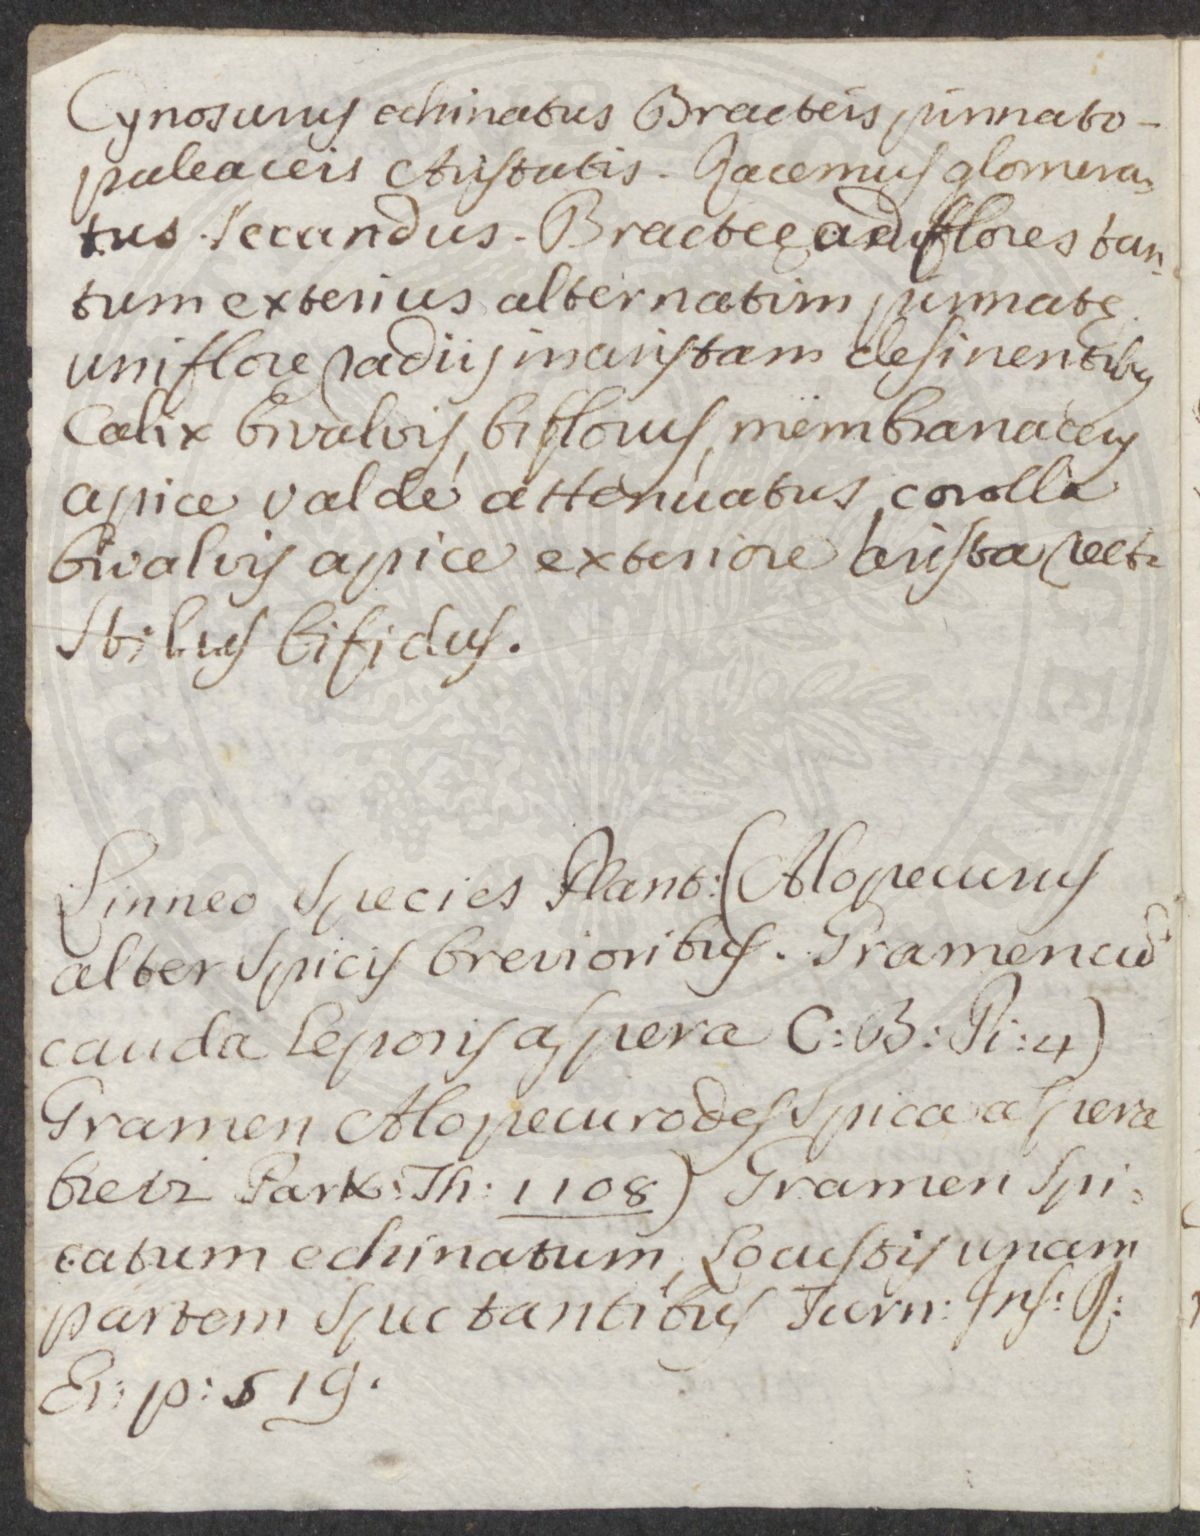 Cynosurus echinatus Bracteis pinnato-
paleaceis Aristatis. Racemus glomera=
tus. Secundus. Bracteę ad flores tan=
tum exterius alternatim pinnatę.
uniflore radiis in aristam desinentibus
Calix bivalvis, biflorus, membranaceus
apice valdé attenuatus, corolla
bivalvis apice exteriore Arista rect:
Stilus bifidus.
Linneo Species Plant: (Alopecurus
alter spicis brevioribus. Gramen cũ
cauda Leporis aspera C: B: Pi: 4)
Gramen Alopecurodes spica aspera
brevi Park: Th: 1108) Gramen Spi=
catum echinatum, Locustis unam
partem spectantibus Turn: Ins: R:
Er: p: 519.